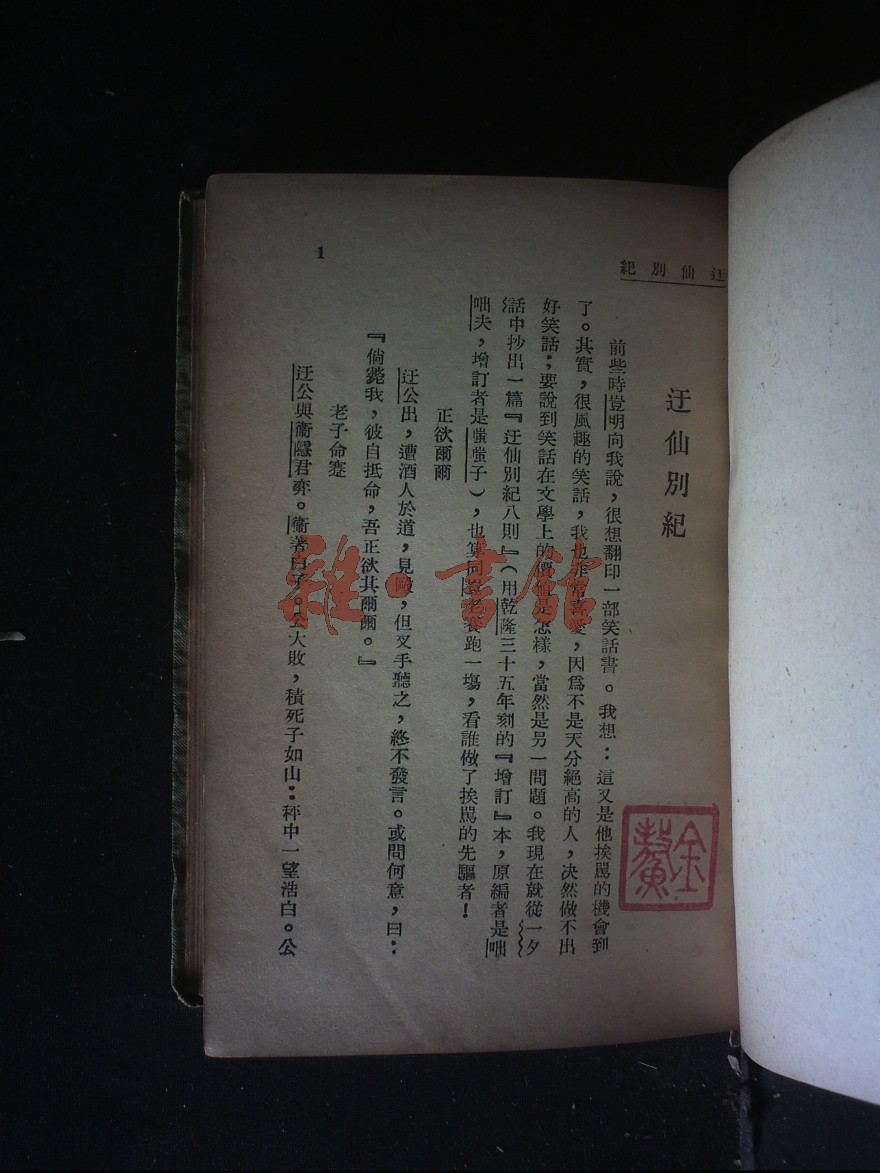 迂仙別紀
迂仙別紀
前些時豈明向我說，很想翻印一部笑話書。我想：這又是他挨罵的機會到
了。其實，很風趣的笑話，我也非常喜愛，因爲不是天分絕高的人，决然做不出
好笑話；要說到笑話在文學上的價值是怎樣，當然是另一問題。我現在就從一夕
話中抄出一篇『迂仙別紀八則』（用乾隆三十五年刻的『增訂』本，原編者是咄
咄夫，增訂者是嗤嗤子），也算同豈老賽跑一塲，看誰做了挨罵的先驅者！
正欲爾爾
迂公出，遭酒人於道，見毆，但叉手聽之，終不發言。或問何意，曰：
『倘斃我，彼自抵命，吾正欲其爾爾。』
老子命蹇
迂公與衞隱君弈。衞著白子。公大敗，積死子如山：秤中一望浩白。公
1
雜·書館